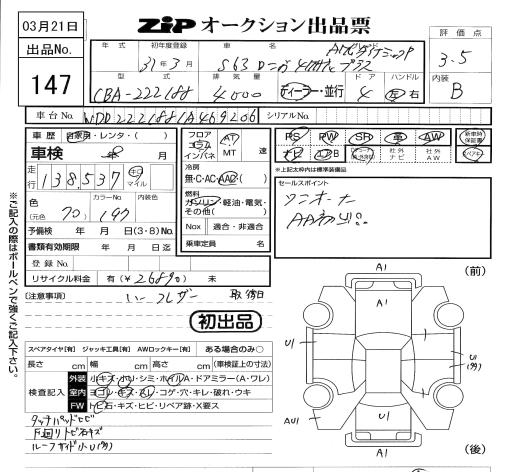 03月21日
ZIP オークション出品票
出品No.
147
評価点
3.5
内装
B
年式 初年度登録 車名 グレード
31年3月 S63
型式 排気量 ドア ハンドル
CBA-222188 4000 ディーラー・並行 4 左 右
車台No. WDD2221881A469206 シリアルNo.
車歴 自家用・レンタ・( )
車検 年 月
走行 138,537 キロ マイル
色 (元色 ) カラーNo. 197 内装色
予備検 年 月 日(3・8)No.
書類有効期限 年 月 日迄
登録No.
リサイクル料金 有(¥ ) 未
フロア コラム インパネ AT MT 速
冷房 無・C・AC・AAC( )
燃料 ガソリン・軽油・電気・その他( )
Nox 適合・非適合
乗車定員 名
PS PW SR 革 AW 新車時保証書
ナビ エアB 社外ナビ 社外AW
※上記太枠内は標準装備品
セールスポイント
ワンオーナー
[注意事項]
レザー
初出品
スペアタイヤ[有] ジャッキ工具[有] AWロックキー[有] ある場合のみ○
長さ cm 幅 cm 高さ cm (車検証上の寸法)
検査記入
外装 小キズ・ホリ・シミ・ホイルA・ドアミラー(A・ワレ)
室内 ヨゴレ・キズ・スレ・コゲ・穴・キレ・破れ・ウキ
FW トビ石・キズ・ヒビ・リペア跡・X要ス
タッチパッドヒビ
下廻リトビ石キズ
ルーフサイド小U
※ご記入の際はボールペンで強くご記入下さい。
(前)
A1
A1
U1
U1
AU1
U1
A1
(後)